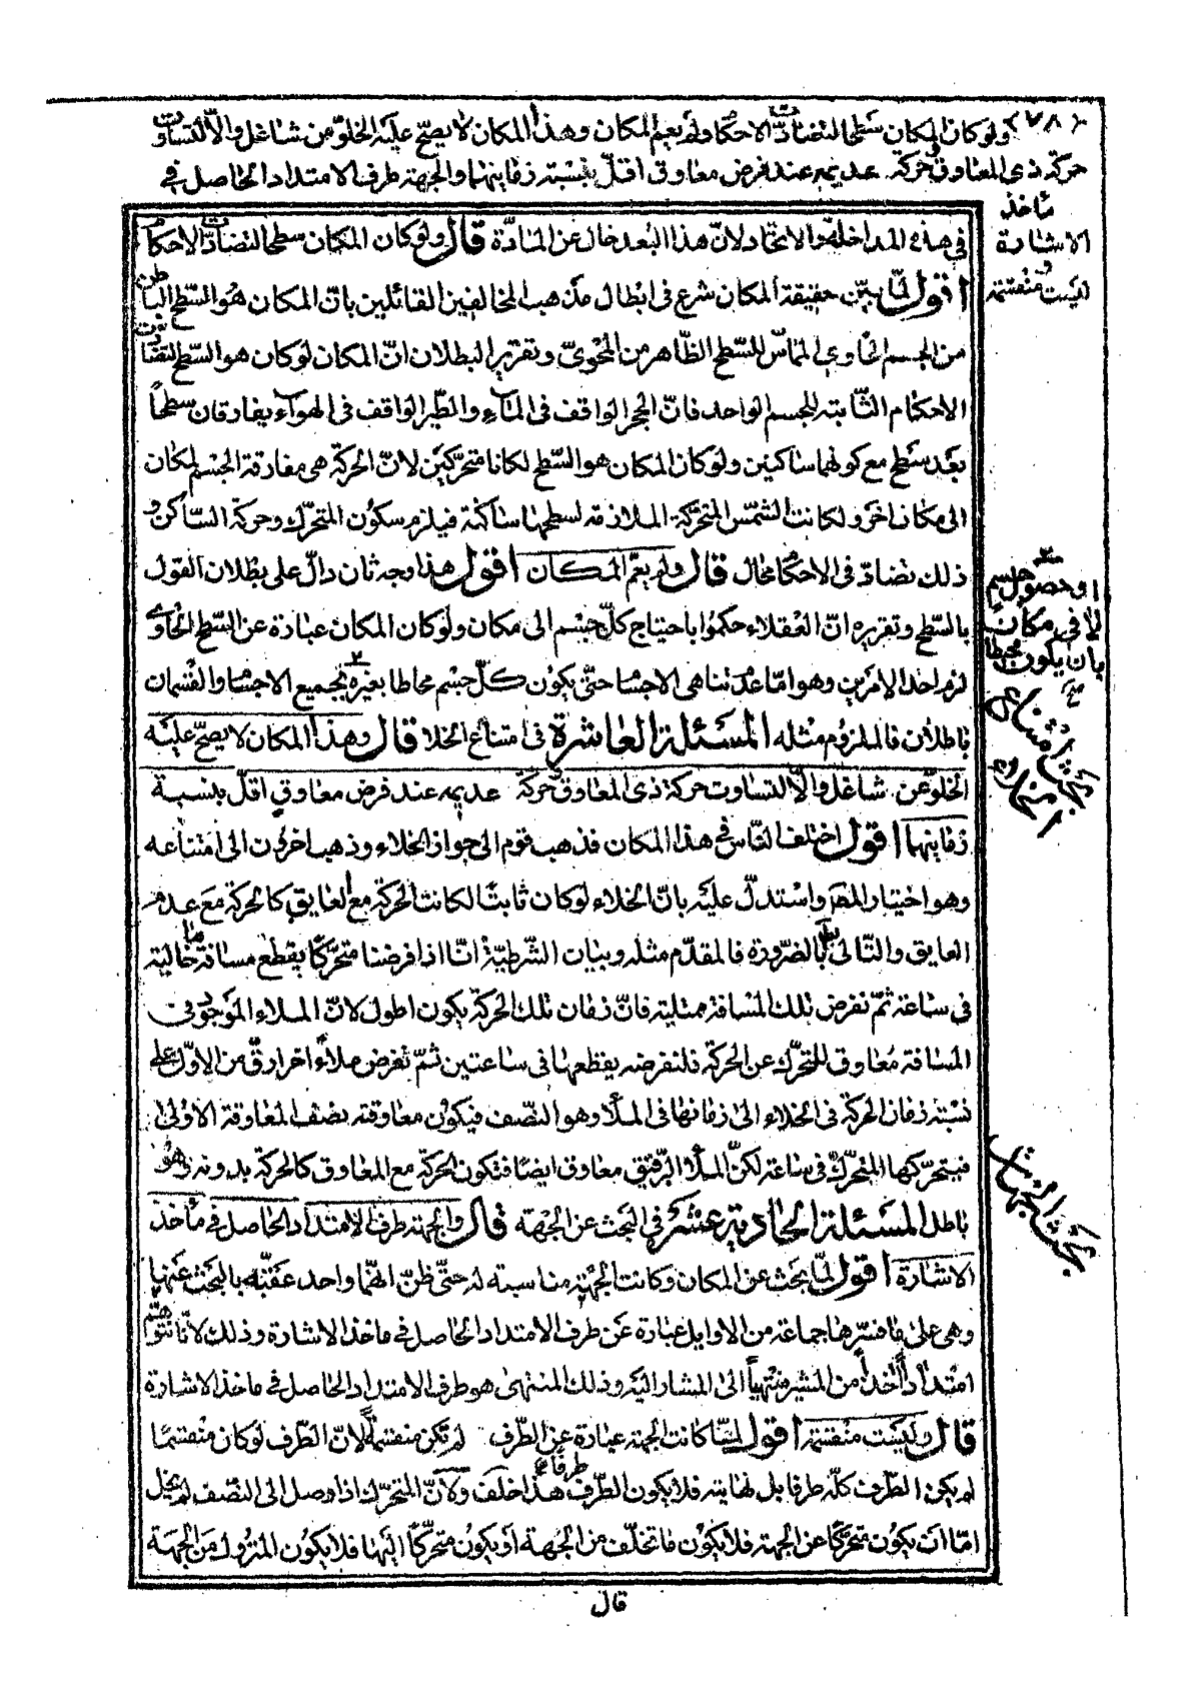 ﴿٧٨﴾ ولو كان المكان سطحا لتضادت الاحكام ولم يعم المكان وهذا المكان لا يصح عليه الخلو من شاغل والا لتساوت
حركة ذى المعاوق وحركة عديمه عند فرض معاوق اقل بنسبة زمانيهما والجهة طرف الامتداد الحاصل فى
مأخذ
الاشارة
وليست منقسمة
فى هذه المداخلة والاتحاد لان هذا البعد خال عن المادة قال ولو كان المكان سطحا لتضادت الاحكام
اقول لما بين حقيقة المكان شرع فى ابطال مذهب المخالفين القائلين بان المكان هو السطح الباطن
من الجسم الحاوى المماس للسطح الظاهر من المحوى وتقرير البطلان ان المكان لو كان هو السطح لتضادت
الاحكام الثابتة للجسم الواحد فان الحجر الواقف فى الماء والطير الواقف فى الهواء يفارقان سطحاً
بعد سطح مع كونهما ساكنين ولو كان المكان هو السطح لكانا متحركين لان الحركة هى مفارقة الجسم لمكان
الى مكان اخر ولكانت الشمس المتحركة الملازمة لسطحها ساكنة فيلزم سكون المتحرك وحركة الساكن و
ذلك تضاد فى الاحكام محال قال ولم يعم المكان اقول هذا وجه ثان دال على بطلان القول
بالسطح وتقريره ان العقلاء حكموا باحتياج كل جسم الى مكان ولو كان المكان عبارة عن السطح الحاوى
لزم احد الامرين وهو اما عدم تناهى الاجسام حتى يكون كل جسم محاطا بغيره لجميع الاجسام والقسمان
او حصول جسم
لا فى مكان
بان يكون محيطا
باطلان فالملزوم مثله المسئلة العاشرة فى امتناع الخلا قال وهذا المكان لا يصح عليه
بحث امتناع
الخلو عن شاغل والا لتساوت حركة ذى المعاوق وحركة عديمه عند فرض معاوق اقل بنسبة
زمانيهما اقول اختلف الناس فى هذا المكان فذهب قوم الى جواز الخلاء وذهب اخرون الى امتناعه
وهو اختيار المص واستدل عليه بان الخلاء لو كان ثابتا لكانت الحركة مع العايق كالحركة مع عدم
العايق والتالى بط بالضرورة فالمقدم مثله وبيان الشرطية انا اذا فرضنا متحركا يقطع مسافة ما خالية
فى ساعة ثم نفرض تلك المسافة ممتلية فان زمان تلك الحركة يكون اطول لان الملاء الموجود فى
المسافة معاوق للمتحرك عن الحركة فلنفرضه يقطعها فى ساعتين ثم نفرض ملاءً اخر ارق من الاول على
نسبة زمان الحركة فى الخلاء الى زمانها فى الملأ وهو النصف فيكون معاوقته نصف المعاوقة الاولى
فيتحركها المتحرك فى ساعة لكن الملأ الرقيق معاوق ايضا فتكون الحركة مع المعاوق كالحركة بدونه وهو
باطل المسئلة الحادية عشر فى البحث عن الجهة قال والجهة طرف الامتداد الحاصل فى مأخذ
بحث الجهات
الاشارة اقول لما بحث عن المكان وكانت الجهة مناسبة له حتى ظن انهما واحد عقبه بالبحث عنها
وهى على ما فسرها جماعة من الاوايل عبارة عن طرف الامتداد الحاصل فى ماخذ الاشارة وذلك لانا نتوهم
امتداداً اخذاً من المشير منتهياً الى المشار اليه وذلك المنتهى هو طرف الامتداد الحاصل فى ماخذ الاشارة
قال وليست منقسمة اقول لما كانت الجهة عبارة عن الطرف لم تكن منقسمة لان الطرف لو كان منقسما
لم يكن الطرف كله طرفا بل نهايته فلا يكون الطرف طرفا هذا خلف ولان المتحرك اذا وصل الى النصف لم يخل
اما ان يكون متحركا عن الجهة فلا يكون ما تخلف من الجهة او يكون متحركاً اليها فلا يكون المتروك من الجهة
قال